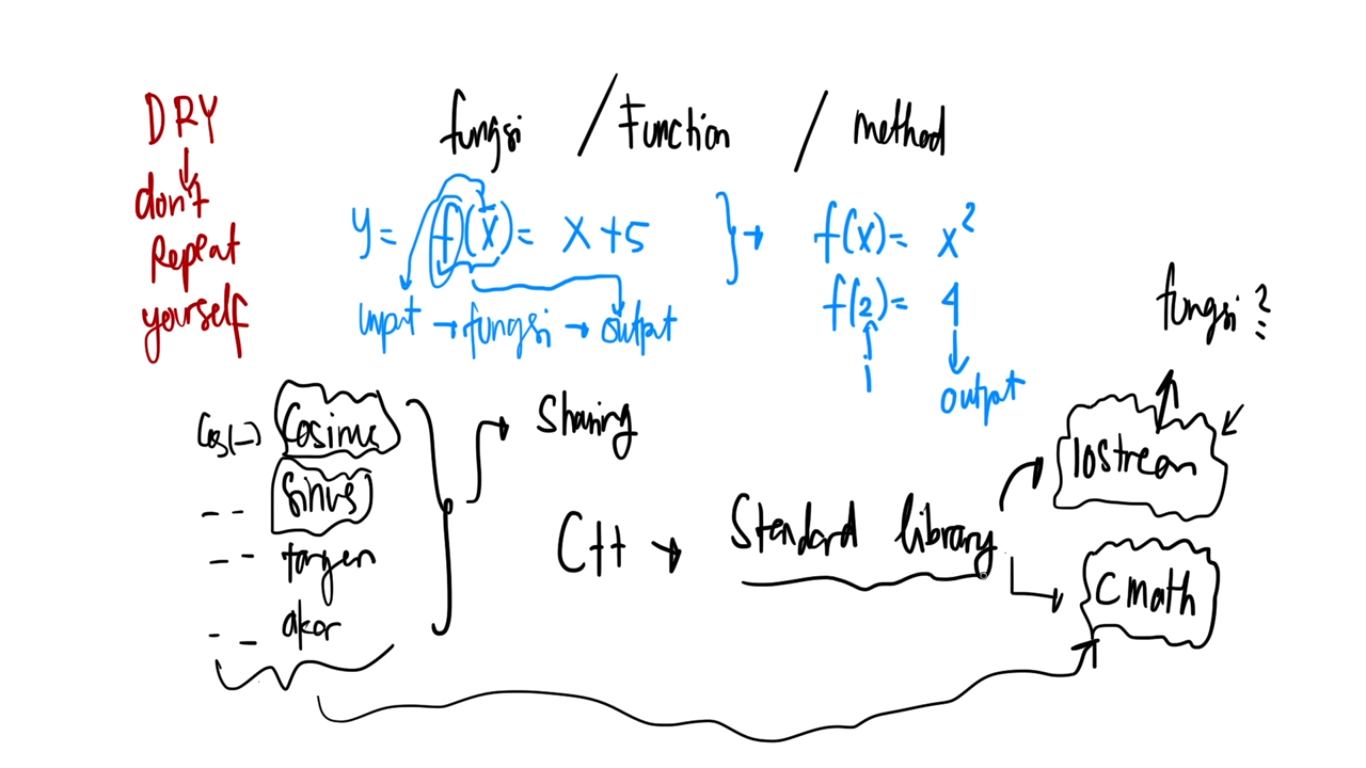 DRY
don't
Repeat
yourself
fungsi / Function / method
y = f(x) = x + 5
input → fungsi → output
f(x) = x²
f(2) = 4
output
fungsi?
Cos(_) Cosinus
-- Sinus
-- tangen
-- akar
Sharing
C++ → Standard library
Iostream
Cmath